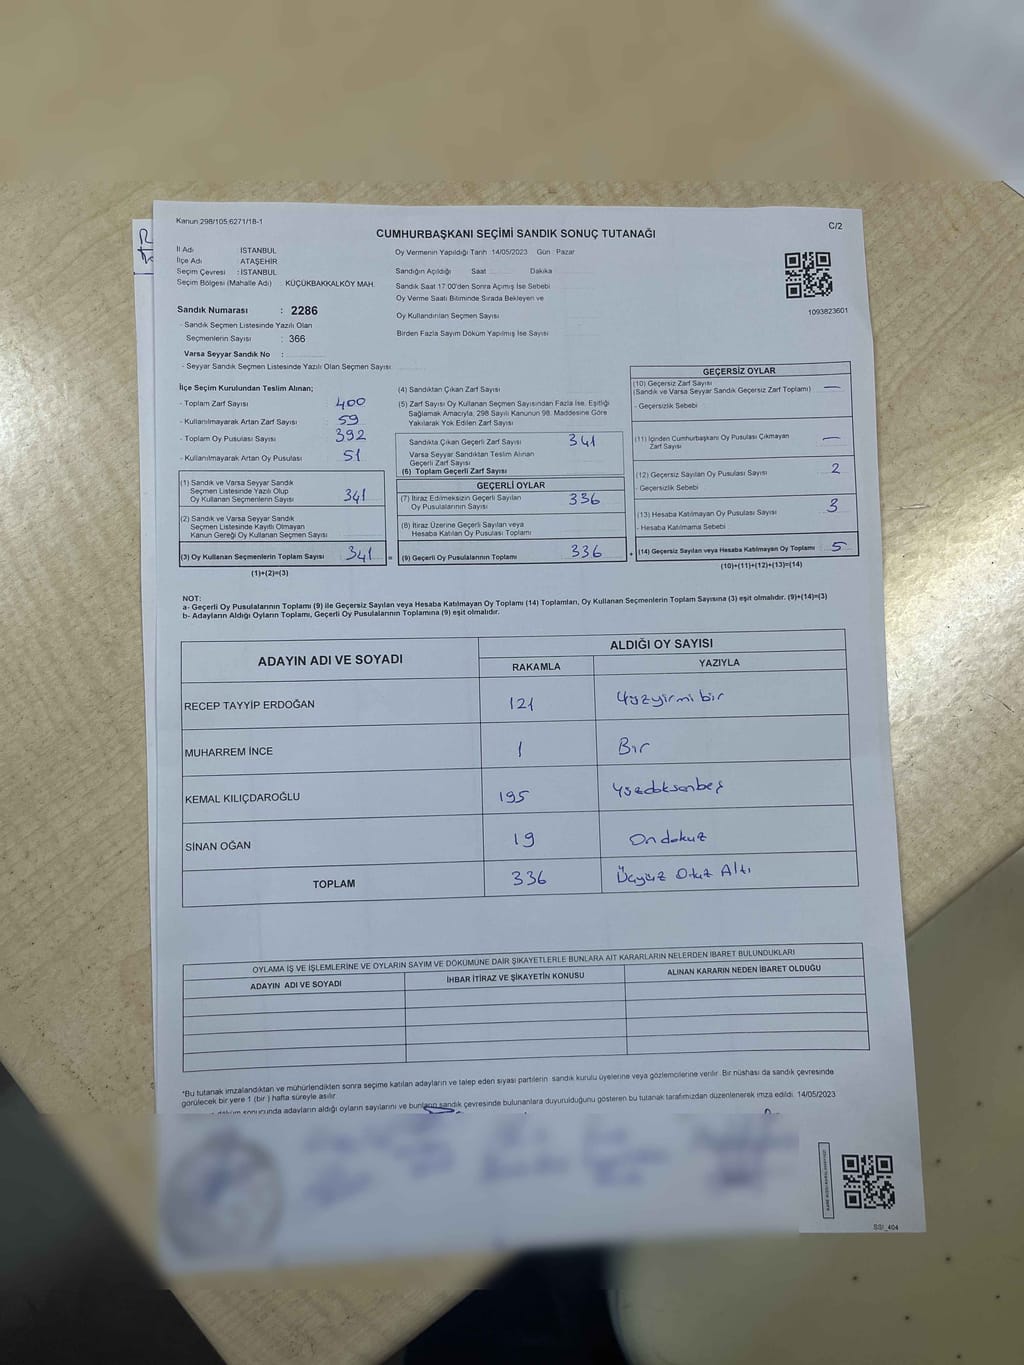 Kanun 298/105,6271/18-1
C/2
CUMHURBAŞKANI SEÇİMİ SANDIK SONUÇ TUTANAĞI
İl Adı İSTANBUL
İlçe Adı ATAŞEHİR
Seçim Çevresi : İSTANBUL
Seçim Bölgesi (Mahalle Adı) : KÜÇÜKBAKKALKÖY MAH.
Sandık Numarası : 2286
- Sandık Seçmen Listesinde Yazılı Olan
Seçmenlerin Sayısı : 366
Varsa Seyyar Sandık No :
- Seyyar Sandık Seçmen Listesinde Yazılı Olan Seçmen Sayısı
Oy Vermenin Yapıldığı Tarih 14/05/2023 Gün : Pazar
Sandığın Açıldığı Saat Dakika
Sandık Saat 17:00'den Sonra Açımış İse Sebebi
Oy Verme Saati Bitiminde Sırada Bekleyen ve
Oy Kullandırılan Seçmen Sayısı
Birden Fazla Sayım Döküm Yapılmış İse Sayısı
1093823601
İlçe Seçim Kurulundan Teslim Alınan;
- Toplam Zarf Sayısı 400
- Kullanılmayarak Artan Zarf Sayısı 59
- Toplam Oy Pusulası Sayısı 392
- Kullanılmayarak Artan Oy Pusulası 51
(1) Sandık ve Varsa Seyyar Sandık
Seçmen Listesinde Yazılı Olup
Oy Kullanan Seçmenlerin Sayısı 341
(2) Sandık ve Varsa Seyyar Sandık
Seçmen Listesinde Kayıtlı Olmayan
Kanun Gereği Oy Kullanan Seçmen Sayısı
(3) Oy Kullanan Seçmenlerin Toplam Sayısı 341 =
(1)+(2)=(3)
(4) Sandıktan Çıkan Zarf Sayısı
(5) Zarf Sayısı Oy Kullanan Seçmen Sayısından Fazla İse, Eşitliği
Sağlamak Amacıyla, 298 Sayılı Kanunun 98. Maddesine Göre
Yakılarak Yok Edilen Zarf Sayısı
Sandıkta Çıkan Geçerli Zarf Sayısı 341
Varsa Seyyar Sandıktan Teslim Alınan
Geçerli Zarf Sayısı
(6) Toplam Geçerli Zarf Sayısı
GEÇERLİ OYLAR
(7) İtiraz Edilmeksizin Geçerli Sayılan
Oy Pusulalarının Sayısı 336
(8) İtiraz Üzerine Geçerli Sayılan veya
Hesaba Katılan Oy Pusulası Toplamı
(9) Geçerli Oy Pusulalarının Toplamı 336 +
GEÇERSİZ OYLAR
(10) Geçersiz Zarf Sayısı
(Sandık ve Varsa Seyyar Sandık Geçersiz Zarf Toplamı) —
- Geçersizlik Sebebi
(11) İçinden Cumhurbaşkanı Oy Pusulası Çıkmayan
Zarf Sayısı —
(12) Geçersiz Sayılan Oy Pusulası Sayısı 2
- Geçersizlik Sebebi
(13) Hesaba Katılmayan Oy Pusulası Sayısı 3
- Hesaba Katılmama Sebebi
(14) Geçersiz Sayılan veya Hesaba Katılmayan Oy Toplamı 5
(10)+(11)+(12)+(13)=(14)
NOT:
a- Geçerli Oy Pusulalarının Toplamı (9) ile Geçersiz Sayılan veya Hesaba Katılmayan Oy Toplamı (14) Toplamları, Oy Kullanan Seçmenlerin Toplam Sayısına (3) eşit olmalıdır. (9)+(14)=(3)
b- Adayların Aldığı Oyların Toplamı, Geçerli Oy Pusulalarının Toplamına (9) eşit olmalıdır.
ADAYIN ADI VE SOYADI
ALDIĞI OY SAYISI
RAKAMLA YAZIYLA
RECEP TAYYİP ERDOĞAN 121 Yüzyirmi bir
MUHARREM İNCE 1 Bir
KEMAL KILIÇDAROĞLU 195 Yüzdoksanbeş
SİNAN OĞAN 19 On dokuz
TOPLAM 336 Üçyüz Otuz Altı
OYLAMA İŞ VE İŞLEMLERİNE VE OYLARIN SAYIM VE DÖKÜMÜNE DAİR ŞİKAYETLERLE BUNLARA AİT KARARLARIN NELERDEN İBARET BULUNDUKLARI
ADAYIN ADI VE SOYADI İHBAR İTİRAZ VE ŞİKAYETİN KONUSU ALINAN KARARIN NEDEN İBARET OLDUĞU
*Bu tutanak imzalandıktan ve mühürlendikten sonra seçime katılan adayların ve talep eden siyasi partilerin sandık kurulu üyelerine veya gözlemcilerine verilir. Bir nüshası da sandık çevresinde
görülecek bir yere 1 (bir ) hafta süreyle asılır.
döküm sonucunda adayların aldığı oyların sayılarını ve bunların sandık çevresinde bulunanlara duyurulduğunu gösteren bu tutanak tarafımızdan düzenlenerek imza edildi. 14/05/2023
SSI_404